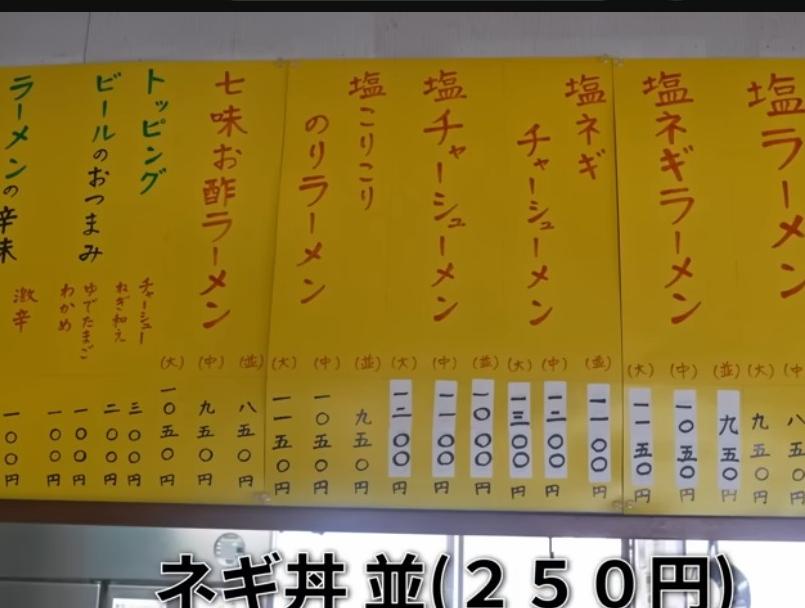 塩ラーメン
(中)
(大)
八五〇円
九五〇円
塩ネギラーメン
(並)
(中)
(大)
九五〇円
一〇五〇円
一一五〇円
塩ネギ
チャーシューメン
(並)
(中)
(大)
一一〇〇円
一二〇〇円
一三〇〇円
塩チャーシューメン
(並)
(中)
(大)
一〇〇〇円
一一〇〇円
一二〇〇円
塩こりこり
のりラーメン
(並)
(中)
(大)
九五〇円
一〇五〇円
一一五〇円
七味お酢ラーメン
(並)
(中)
(大)
八五〇円
九五〇円
一〇五〇円
トッピング
ビールのおつまみ
チャーシュー
ねぎ和え
ゆでたまご
わかめ
三〇〇円
二〇〇円
一〇〇円
一〇〇円
ラーメンの辛味
激辛
一〇〇円
ネギ丼 並(２５０円)